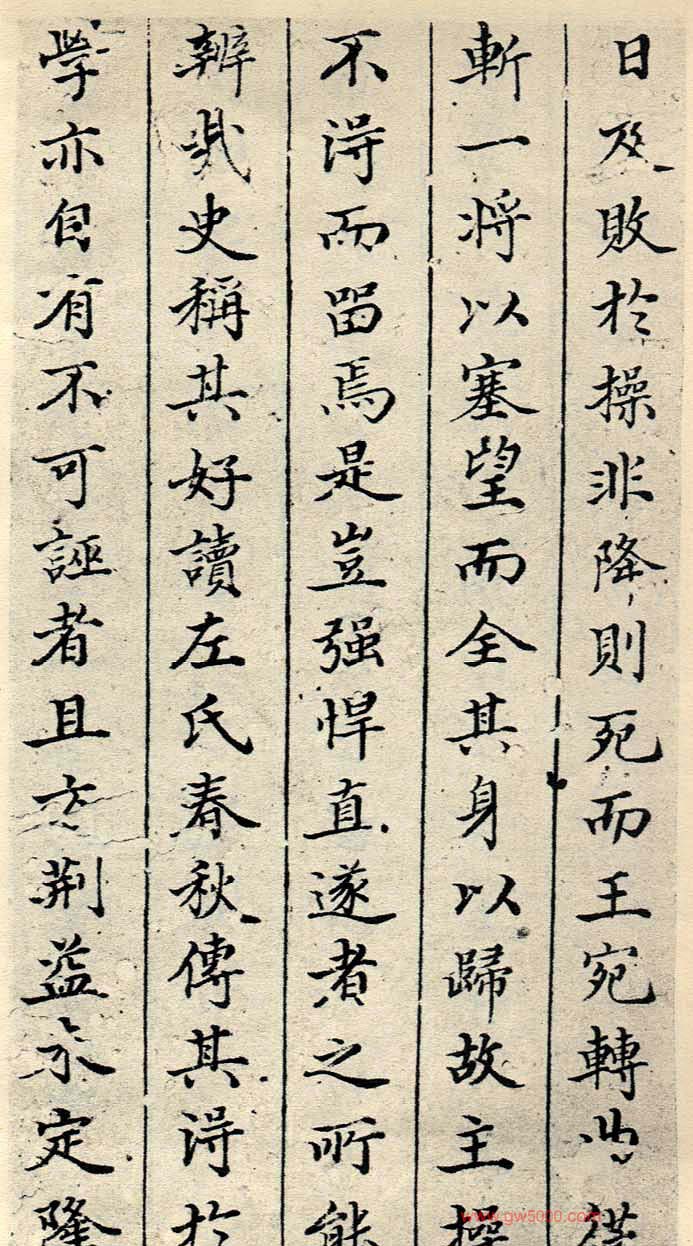 日及敗於操非降則死而王宛轉
斬一將以塞望而全其身以歸故主操
不得而留焉是豈强悍直遂者之所能
辨哉史稱其好讀左氏春秋傳其得於
學亦自有不可誣者且方荊益未定隆
www.gw5000.com